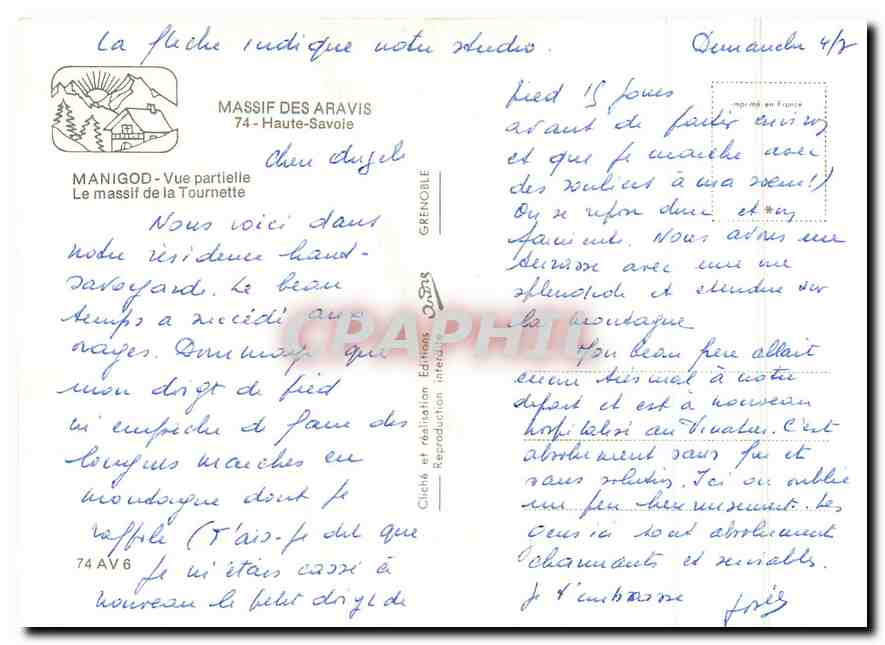 La flèche indique notre studio.
Dimanche 4/7
MASSIF DES ARAVIS
74 - Haute-Savoie
MANIGOD - Vue partielle
Le massif de la Tournette
Chère Angèle
Nous voici dans
notre résidence haut-
savoyarde. Le beau
temps a succédé aux
orages. Dommage que
mon doigt de pied
m'empêche de faire des
longues marches en
montagne dont je
raffole (T'ais-je dit que
je m'étais cassé à
nouveau le petit doigt de
74 AV 6
GRENOBLE
Cliché et réalisation Editions André
Reproduction interdite
Imprimé en France
pied 15 jours
avant de partir
et que je marche avec
des souliers à ma soeur!)
On se repose donc et
. Nous avons une
terrasse avec une vue
splendide et étendue sur
la montagne
Mon beau frère allait
encore très mal à notre
départ et est à nouveau
hospitalisé au Vinatier. C'est
absolument sans fin et
sans solution. Ici on oublie
un peu heureusement. Les
gens ici sont absolument
charmants et serviables.
Je t'embrasse
Josée
CPAPHIL